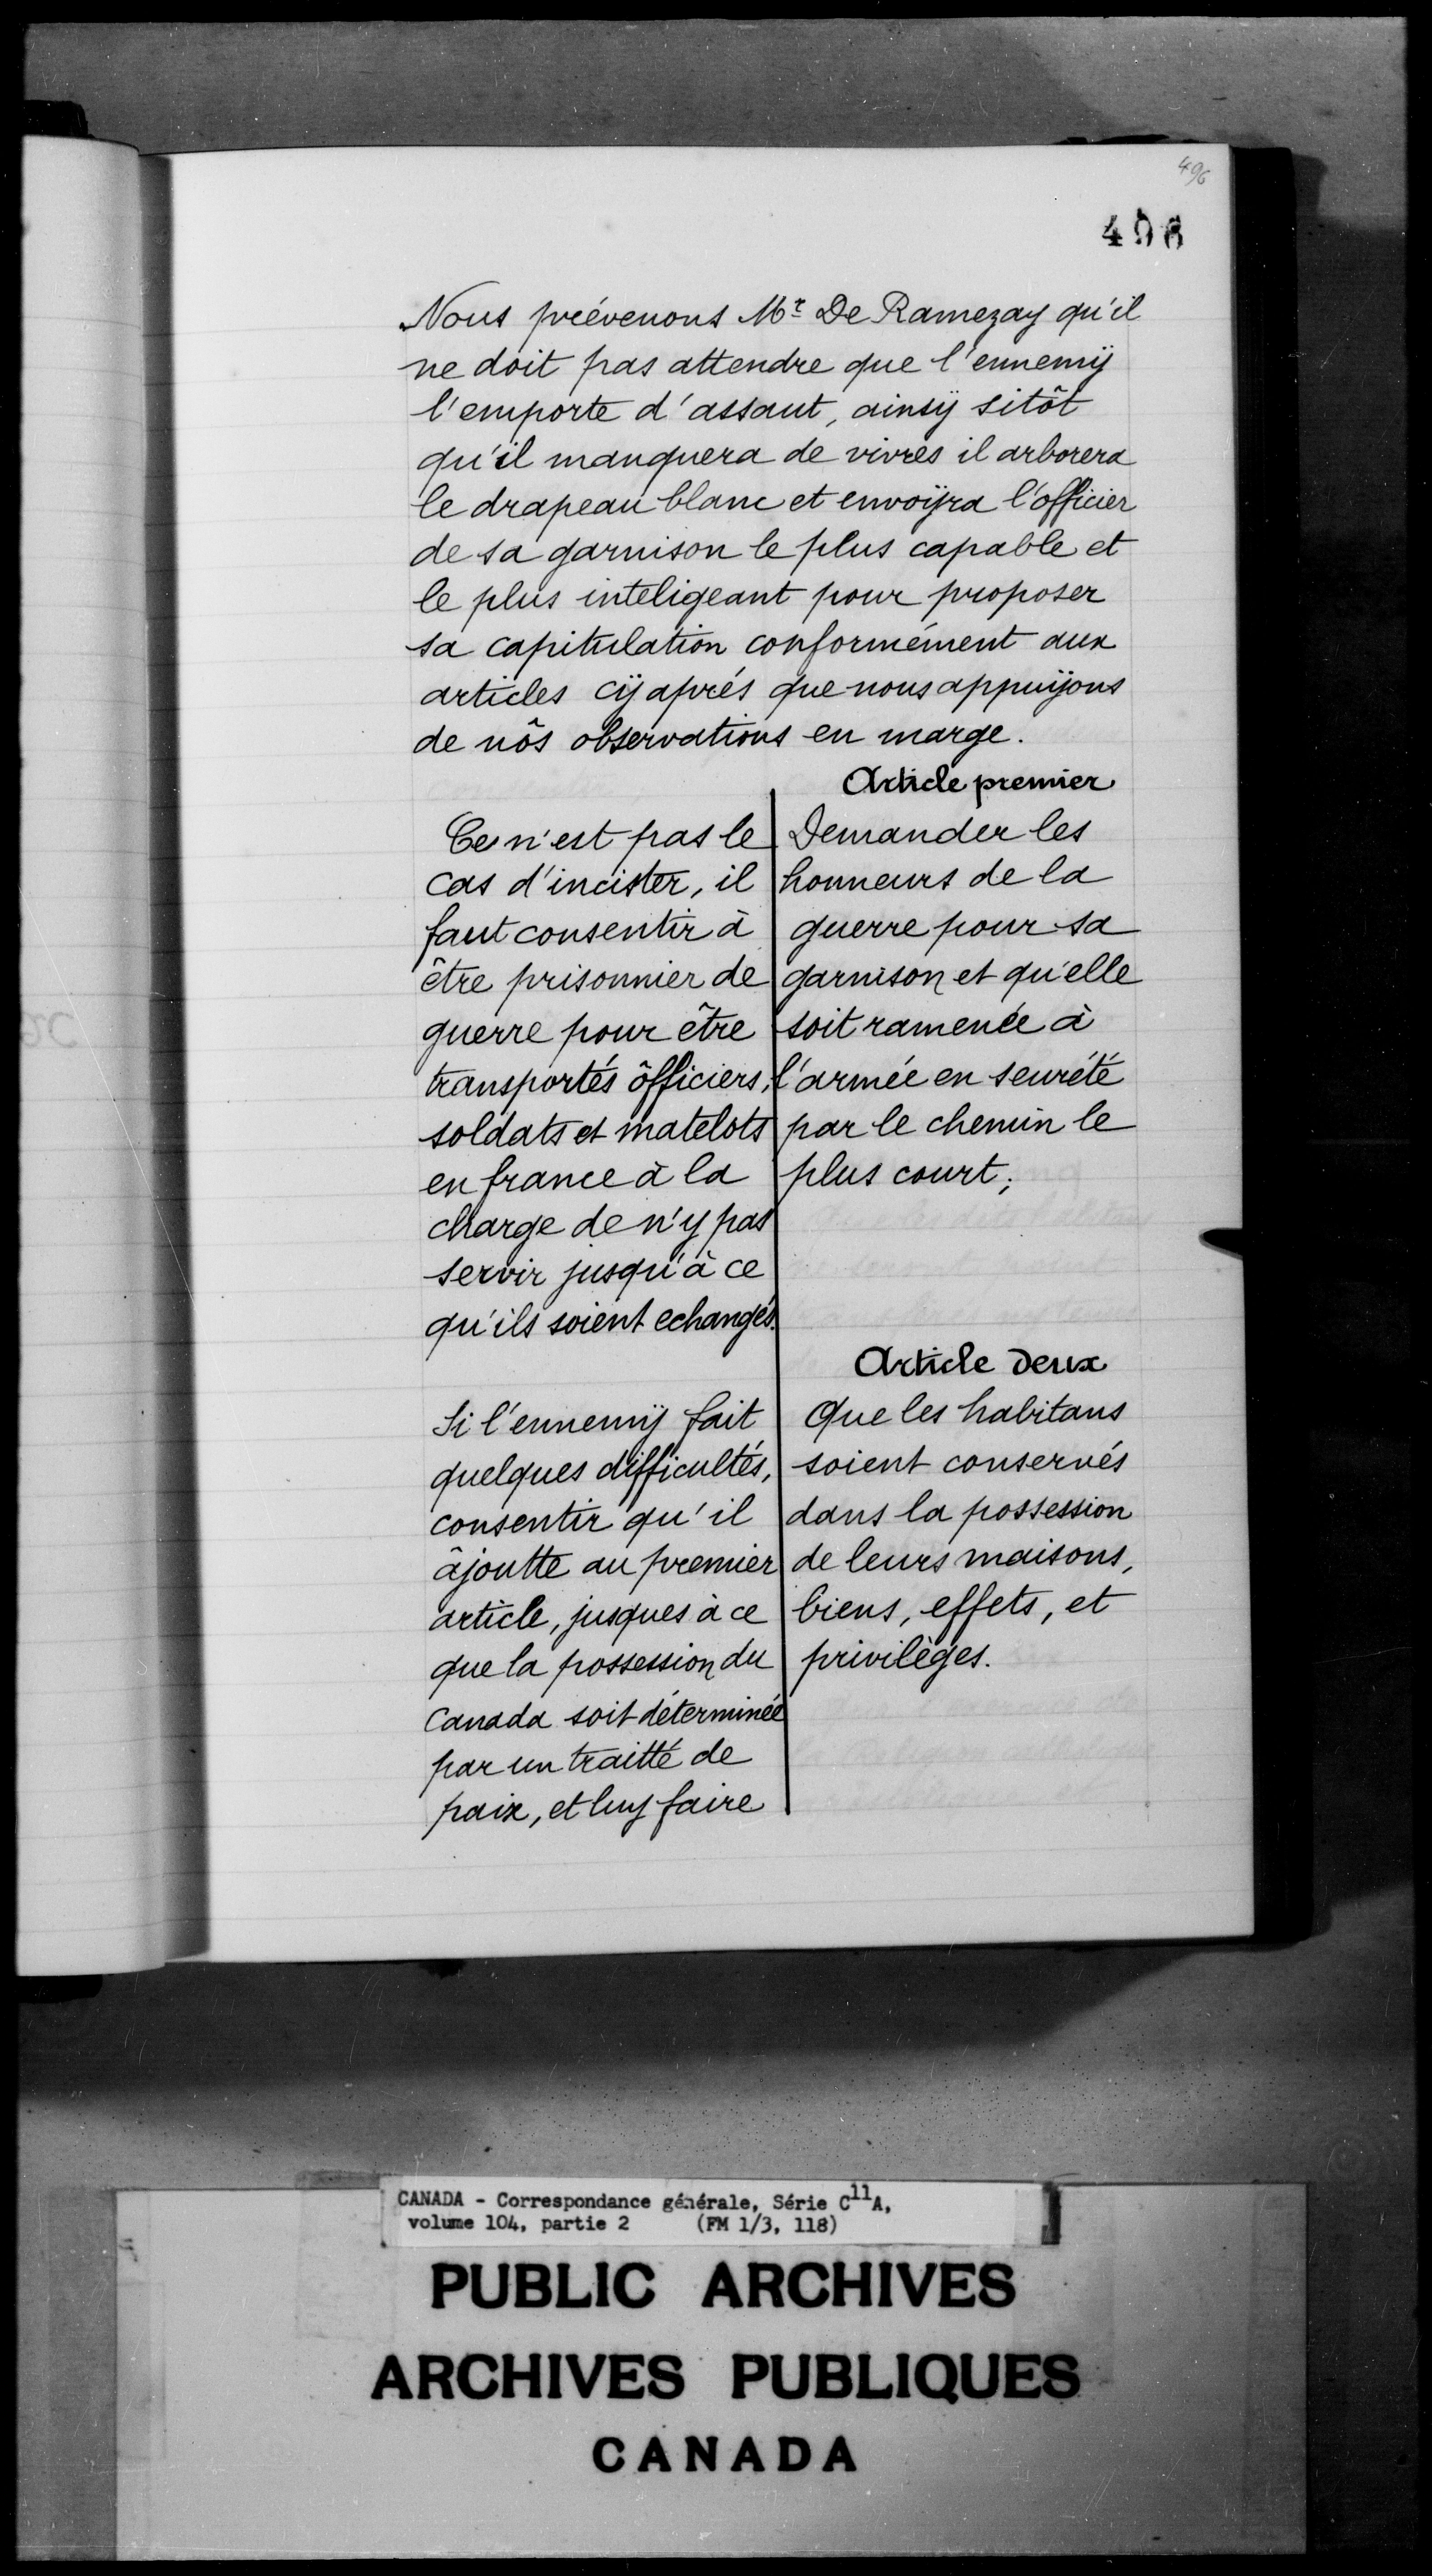 496
496
Nous prévenons Mr De Ramezay qu'il
ne doit pas attendre que l'ennemÿ
l'emporte d'assaut, ainsÿ sitôt
qu'il manquera de vivres il arborera
le drapeau blanc et envoÿra l'officier
de sa garnison le plus capable et
le plus inteligeant pour proposer
sa capitulation conformément aux
articles cÿ aprés que nous appuÿons
de nôs observations en marge.
Article premier
Demander les
honneurs de la
guerre pour sa
garnison et qu'elle
soit ramenée à
l'armée en seureté
par le chemin le
plus court;
Ce n'est pas le
cas d'incister, il
faut consentir à
être prisonnier de
guerre pour être
transportés ôfficiers,
soldats et matelots
en france à la
charge de n'y pas
servir jusqu'à ce
qu'ils soient echangés.
Article deux
Que les habitans
soient conservés
dans la possession
de leurs maisons,
biens, effets, et
privilèges.
Si l'ennemÿ fait
quelques difficultés,
consentir qu'il
âjoutte au premier
article, jusques à ce
que la possession du
Canada soit déterminée
par un traitté de
paix, et luy faire
CANADA - Correspondance générale, Série C11A,
volume 104, partie 2 (FM 1/3, 118)
PUBLIC ARCHIVES
ARCHIVES PUBLIQUES
CANADA